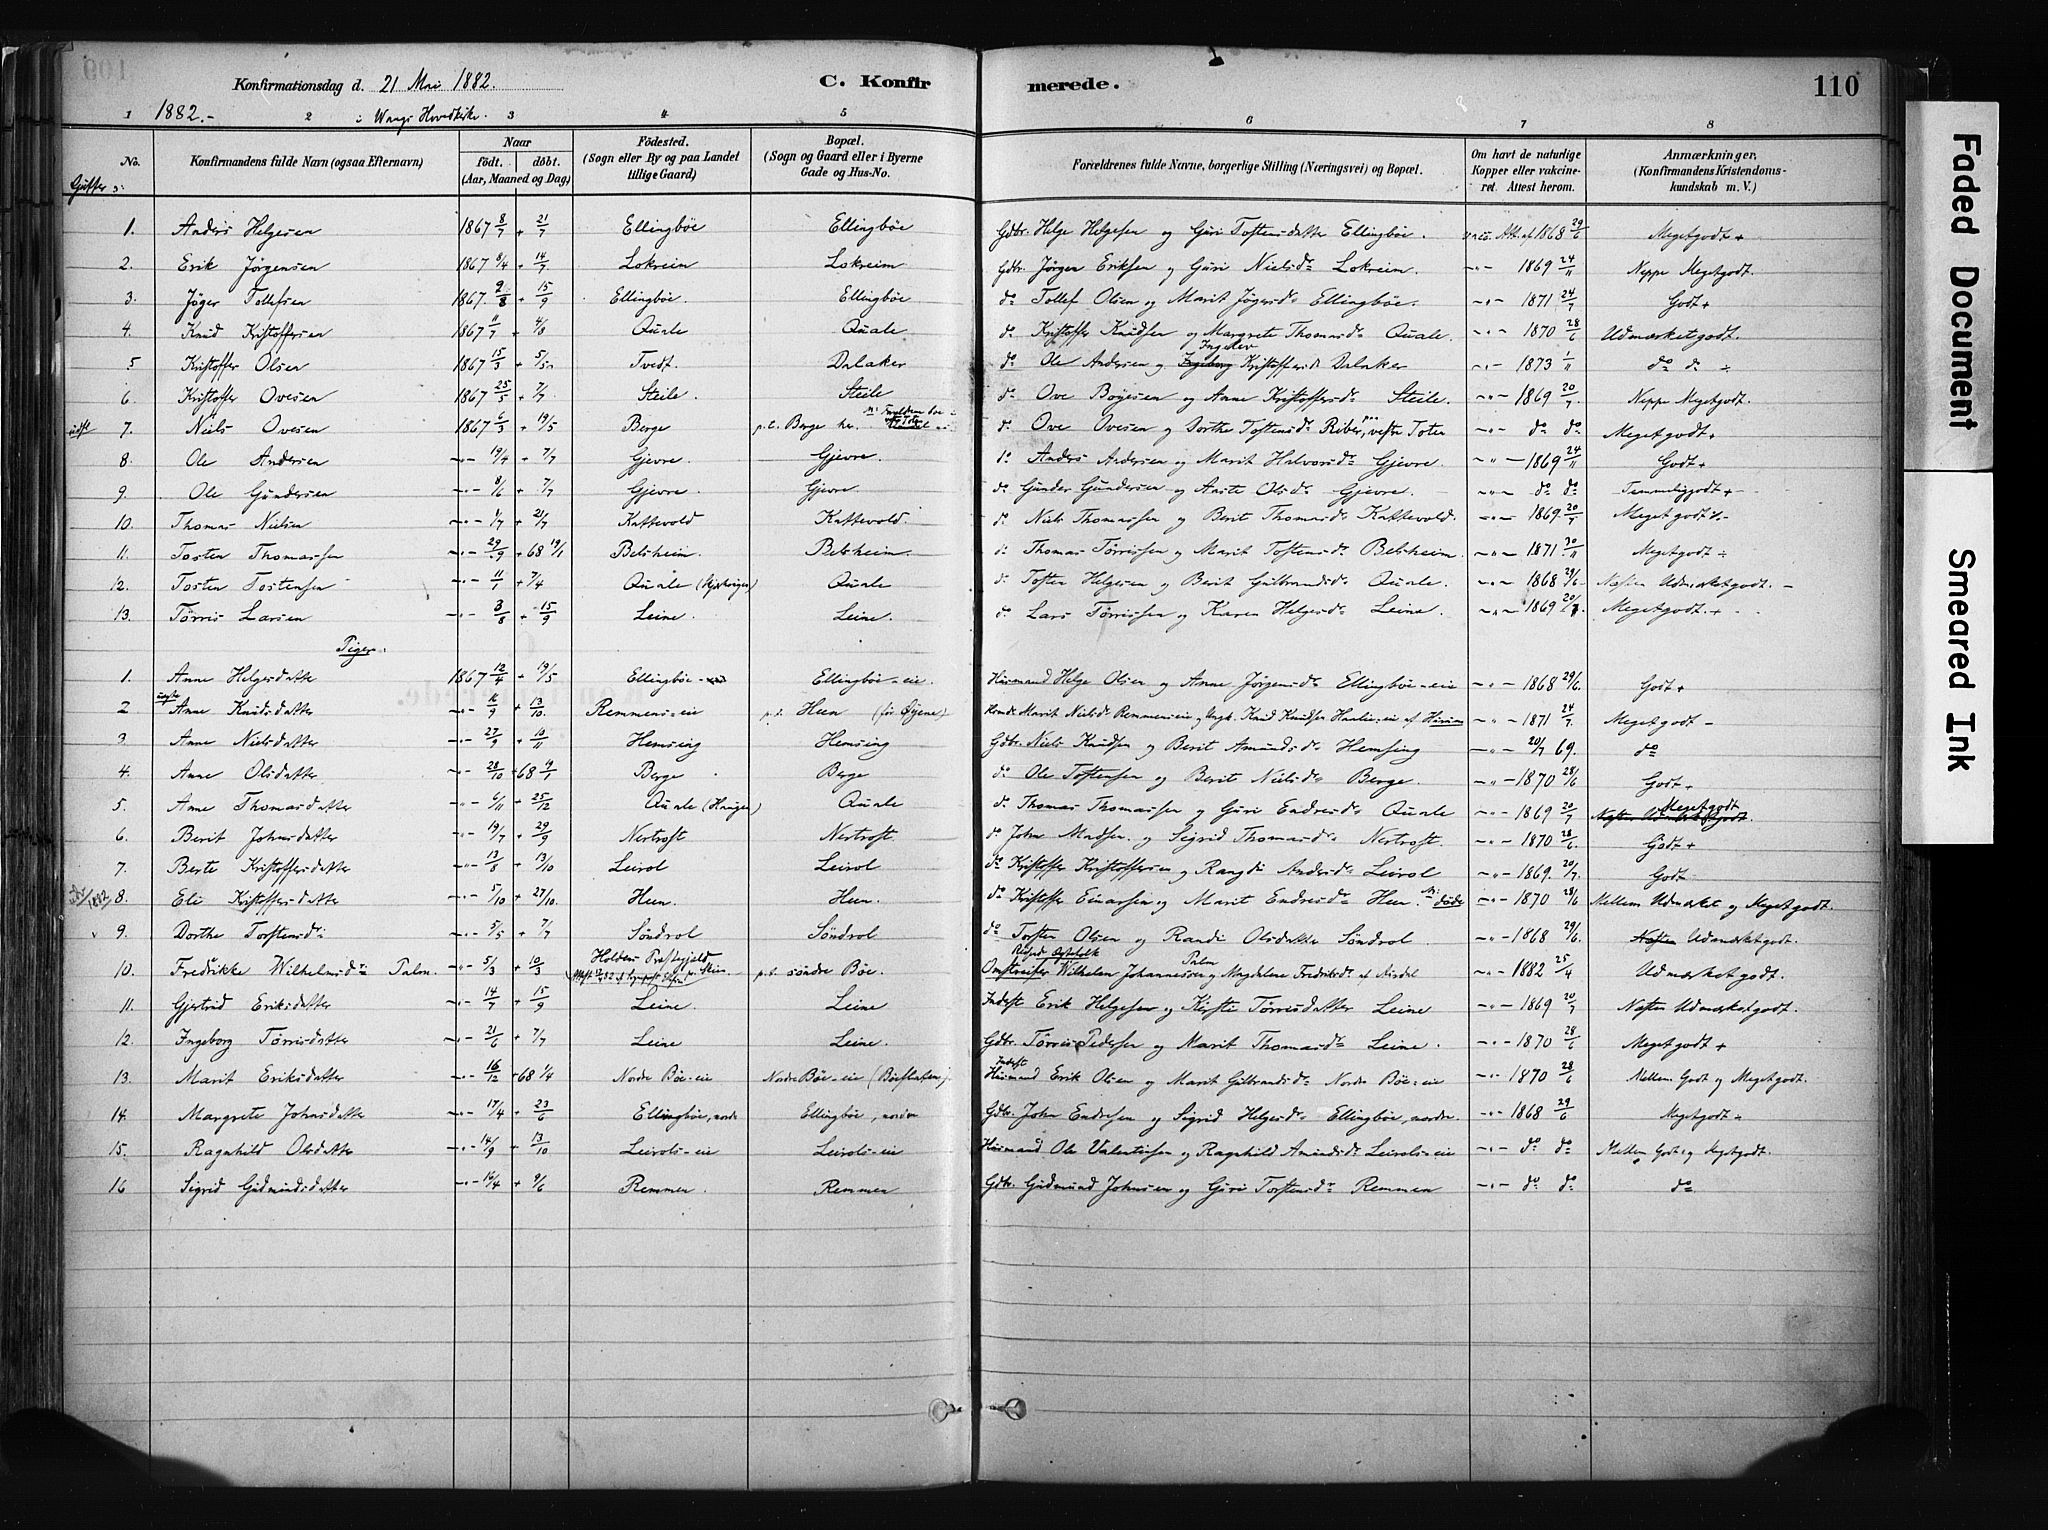 Konfirmationsdag d. 21 Mai 1882. C. Konfirmerede. 110
1882.- i Wangs Hovedkirke.
1 2 3 4 5 6 7 8
No. Konfirmandens fulde Navn (ogsaa Efternavn) Naar født. døbt. (Aar, Maaned og Dag) Födested. (Sogn eller By og paa Landet tillige Gaard) Bopæl. (Sogn og Gaard eller i Byerne Gade og Hus-No. Forældrenes fulde Navne, borgerlige Stilling (Næringsvei) og Bopæl. Om havt de naturlige Kopper eller vakcineret. Attest herom. Anmærkninger. (Konfirmandens Kristendomskundskab m. V.)
Gutter:
1. Anders Helgesen 1867 8/7 + 21/7 Ellingbøe Ellingbøe Gdbr. Helge Helgesen og Guri Tostensdatter Ellingbøe. 1868 29/6 Megetgodt +
2. Erik Jørgensen 1867 8/4 + 14/7 Lokreim Lokreim Gdbr. Jørgen Eriksen og Guri Nielsdr Lokreim. 1869 24/11 Neppe Megetgodt.
3. Jøger Tollefsen 1867 2/8 + 15/9 Ellingbøe. Ellingbøe do Tollef Olsen og Marit Jøgersdr Ellingbøe. 1871 24/7 Godt +
4. Knud Kristoffersen 1867 11/7 + 4/8 Quale Quale do Kristoffer Knudsen og Margrete Thomasdr Quale. 1870 28/6 Udmærketgodt.
5 Kristoffer Olsen 1867 15/3 + 5/5 Tvedt. Dalaker do Ole Andersen og Ingeborg Ingelev Kristoffersdr Dalaker 1873 1/11 do do ÷
6 Kristoffer Ovesen 1867 25/5 + 7/7. Steile. Steile do Ove Bøyesen og Anne Kristoffersdr Steile. 1869 20/7 Neppe Megetgodt.
udfl 7. Niels Ovesen 1867 6/3 + 19/5 Berge p.t. Berge her. do Ove Ovesen og Dorthe Tostensdr Riber, vestre Toten do do Megetgodt +
8. Ole Andersen 19/4 + 7/7 Gjevre. Gjevre. do Anders Andersen og Marit Halvorsdr Gjevre. 1869 24/11 Godt +
9. Ole Gundersen 8/6 + 7/7 Gjevre. Gjevre. do Gunder Gundersen og Anste Olsdr Gjevre. do do Temmeliggodt +
10. Thomas Nielsen 4/7 + 21/7 Kattevold Kattevold. do Niels Thomassen og Berit Thomasdr Kattevold. 1869 20/7 Megetgodt
11. Tosten Thomassen 29/9 + 68 19/1 Belsheim. Belsheim. do Thomas Tørrissen og Marit Tostensdr Belsheim. 1871 30/11 Megetgodt ÷
12. Tosten Tostensen 11/1 + 7/4 Quale Quale do Tosten Helgesen og Berit Gulbrandsdr Quale. 1868 29/6 Næsten Udmærketgodt.
13. Tørris Larsen 3/8 + 15/9 Leine. Leine. do Lars Tørrissen og Karen Helgesdr Leine. 1869 20/7. Megetgodt +
Piger:
1. Anne Helgesdatter 1867 12/4 + 19/5 Ellingbøe Ellingbøe-eie. Husmand Helge Olsen og Anne Jørgensdr Ellingbøe-eie 1868 29/6. Godt +
2 Anne Knudsdatter 16/9 + 13/10. Remmens-eie p.t. Heen (før Øyene) Marit Nielsdr Remmenseie og Ungk. Knud Knudsen 1871 24/7 Megetgodt -
3. Anne Nielsdatter 27/9 + 10/11 Hemsing Hemsing Gdbr. Niels Knudsen og Berit Amundsdr Hemsing 20/7 69. do
4. Anne Olsdatter 28/10 + 68 4/1 Berge Berge do Ole Tostensen og Berit Nielsdr Berge. 1870 28/6 Godt +
5. Anne Thomasdatter 6/11 + 25/12 Quale (Haugen) Quale do Thomas Thomassen og Guri Endresdr Quale 1869 20/7 Næsten Udmærketgodt. Megetgodt
6. Berit Johnsdatter 19/7 + 29/9 Nertrost Nertrost. do John Madsen og Sigrid Thomasdr Nertrost. 1870 28/6. Godt +
7. Berte Kristoffersdatter 13/8 + 13/10 Leirol Leirol do Kristoffer Kristoffersen og Rangdi Andersdr Leirol 1869. 20/7 Godt
1882 8. Eli Kristoffersdatter 5/10 + 27/10. Heen Heen. do Kristoffer Einarsen og Marit Endresdr Heen. M: døde 1870 28/6 Mellem Udmærket og Megetgodt.
9. Dorthe Torstensdr 5/5 + 7/7 Søndrol Søndrol do Torsten Olsen og Randi Olsdatter Søndrol 1868 29/6. Næsten Udmærketgodt.
10. Fredrikke Wilhelmsdr Palm. 5/3 + 10/3 Holdens Præstegjeld p.t. søndre Bøe. Omstreifer Wilhelm Johannessen Palm og Magdalene Fredriksdr 1882 25/4 Udmærketgodt.
11. Gjertrud Eriksdatter 14/7 + 15/9 Leine. Leine. Inderste Erik Helgesen og Kirsti Tørrisdatter Leine 1869 20/7 Næsten Udmærketgodt.
12. Ingeborg Tørrisdatter 21/6 + 7/7 Leine Leine. Gdbr. Tørris Pedersen og Marit Thomasdr Leine. 1870 28/6 Megetgodt +
13. Marit Eriksdatter 16/12 + 68 1/4 Nordre Bøe-eie Nordre Bøe-eie Husmand Inderst Erik Olsen og Marit Gulbrandsdr Nordre Bøe-eie 1870 28/6 Mellem Godt og Megetgodt.
14. Margrete Johnsdatter 17/4 + 23/6 Ellingbøe, nordre Ellingbøe, nordre Gdbr. John Endresen og Sigrid Helgesdr Ellingbøe, nordre. 1868 29/6 Megetgodt ÷
15. Ragnhild Olsdatter 14/9 + 13/10 Leirols-eie Leirols-eie Husmand Ole Valentinsen og Ragnhild Amundsdr Leirols-eie do do Mellem Godt og Megetgodt.
16 Sigrid Gudmundsdatter 16/4 + 9/6 Remmen. Remmen Gdbr. Gudmund Johnsen og Guri Torstensdr Remmen do do do
Faded Document
Smeared Ink